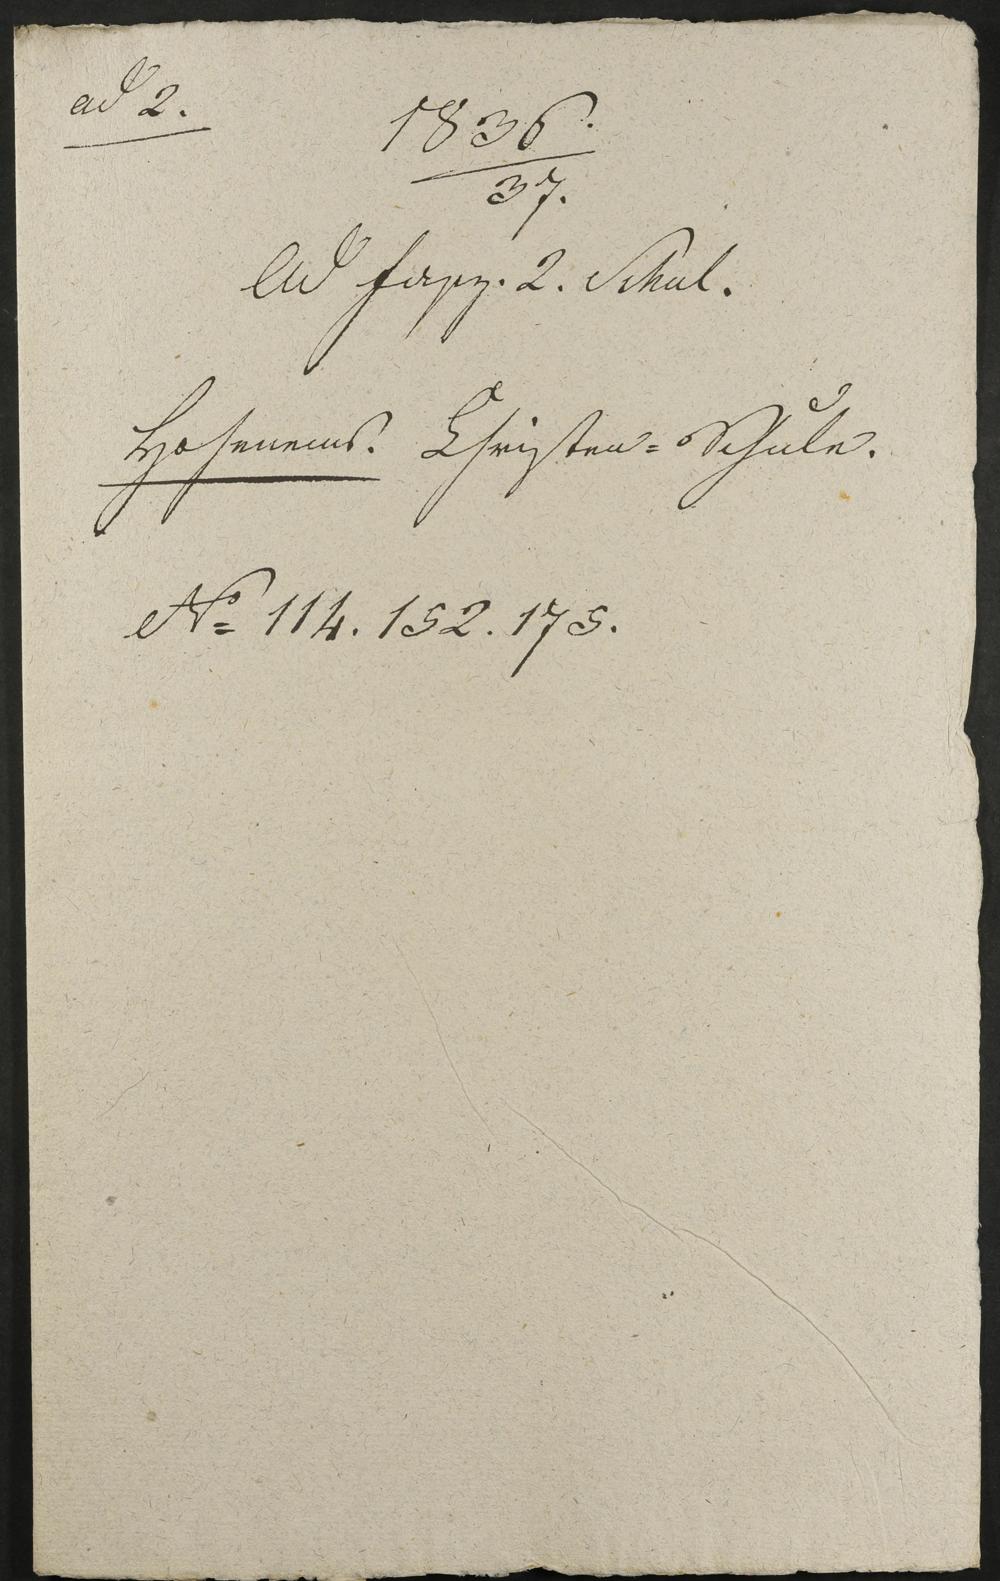 ad 2.
1836.
37.
Ad fasz. 2. Schul.
Hohenems. Christen=Schule.
No 114. 152. 175.